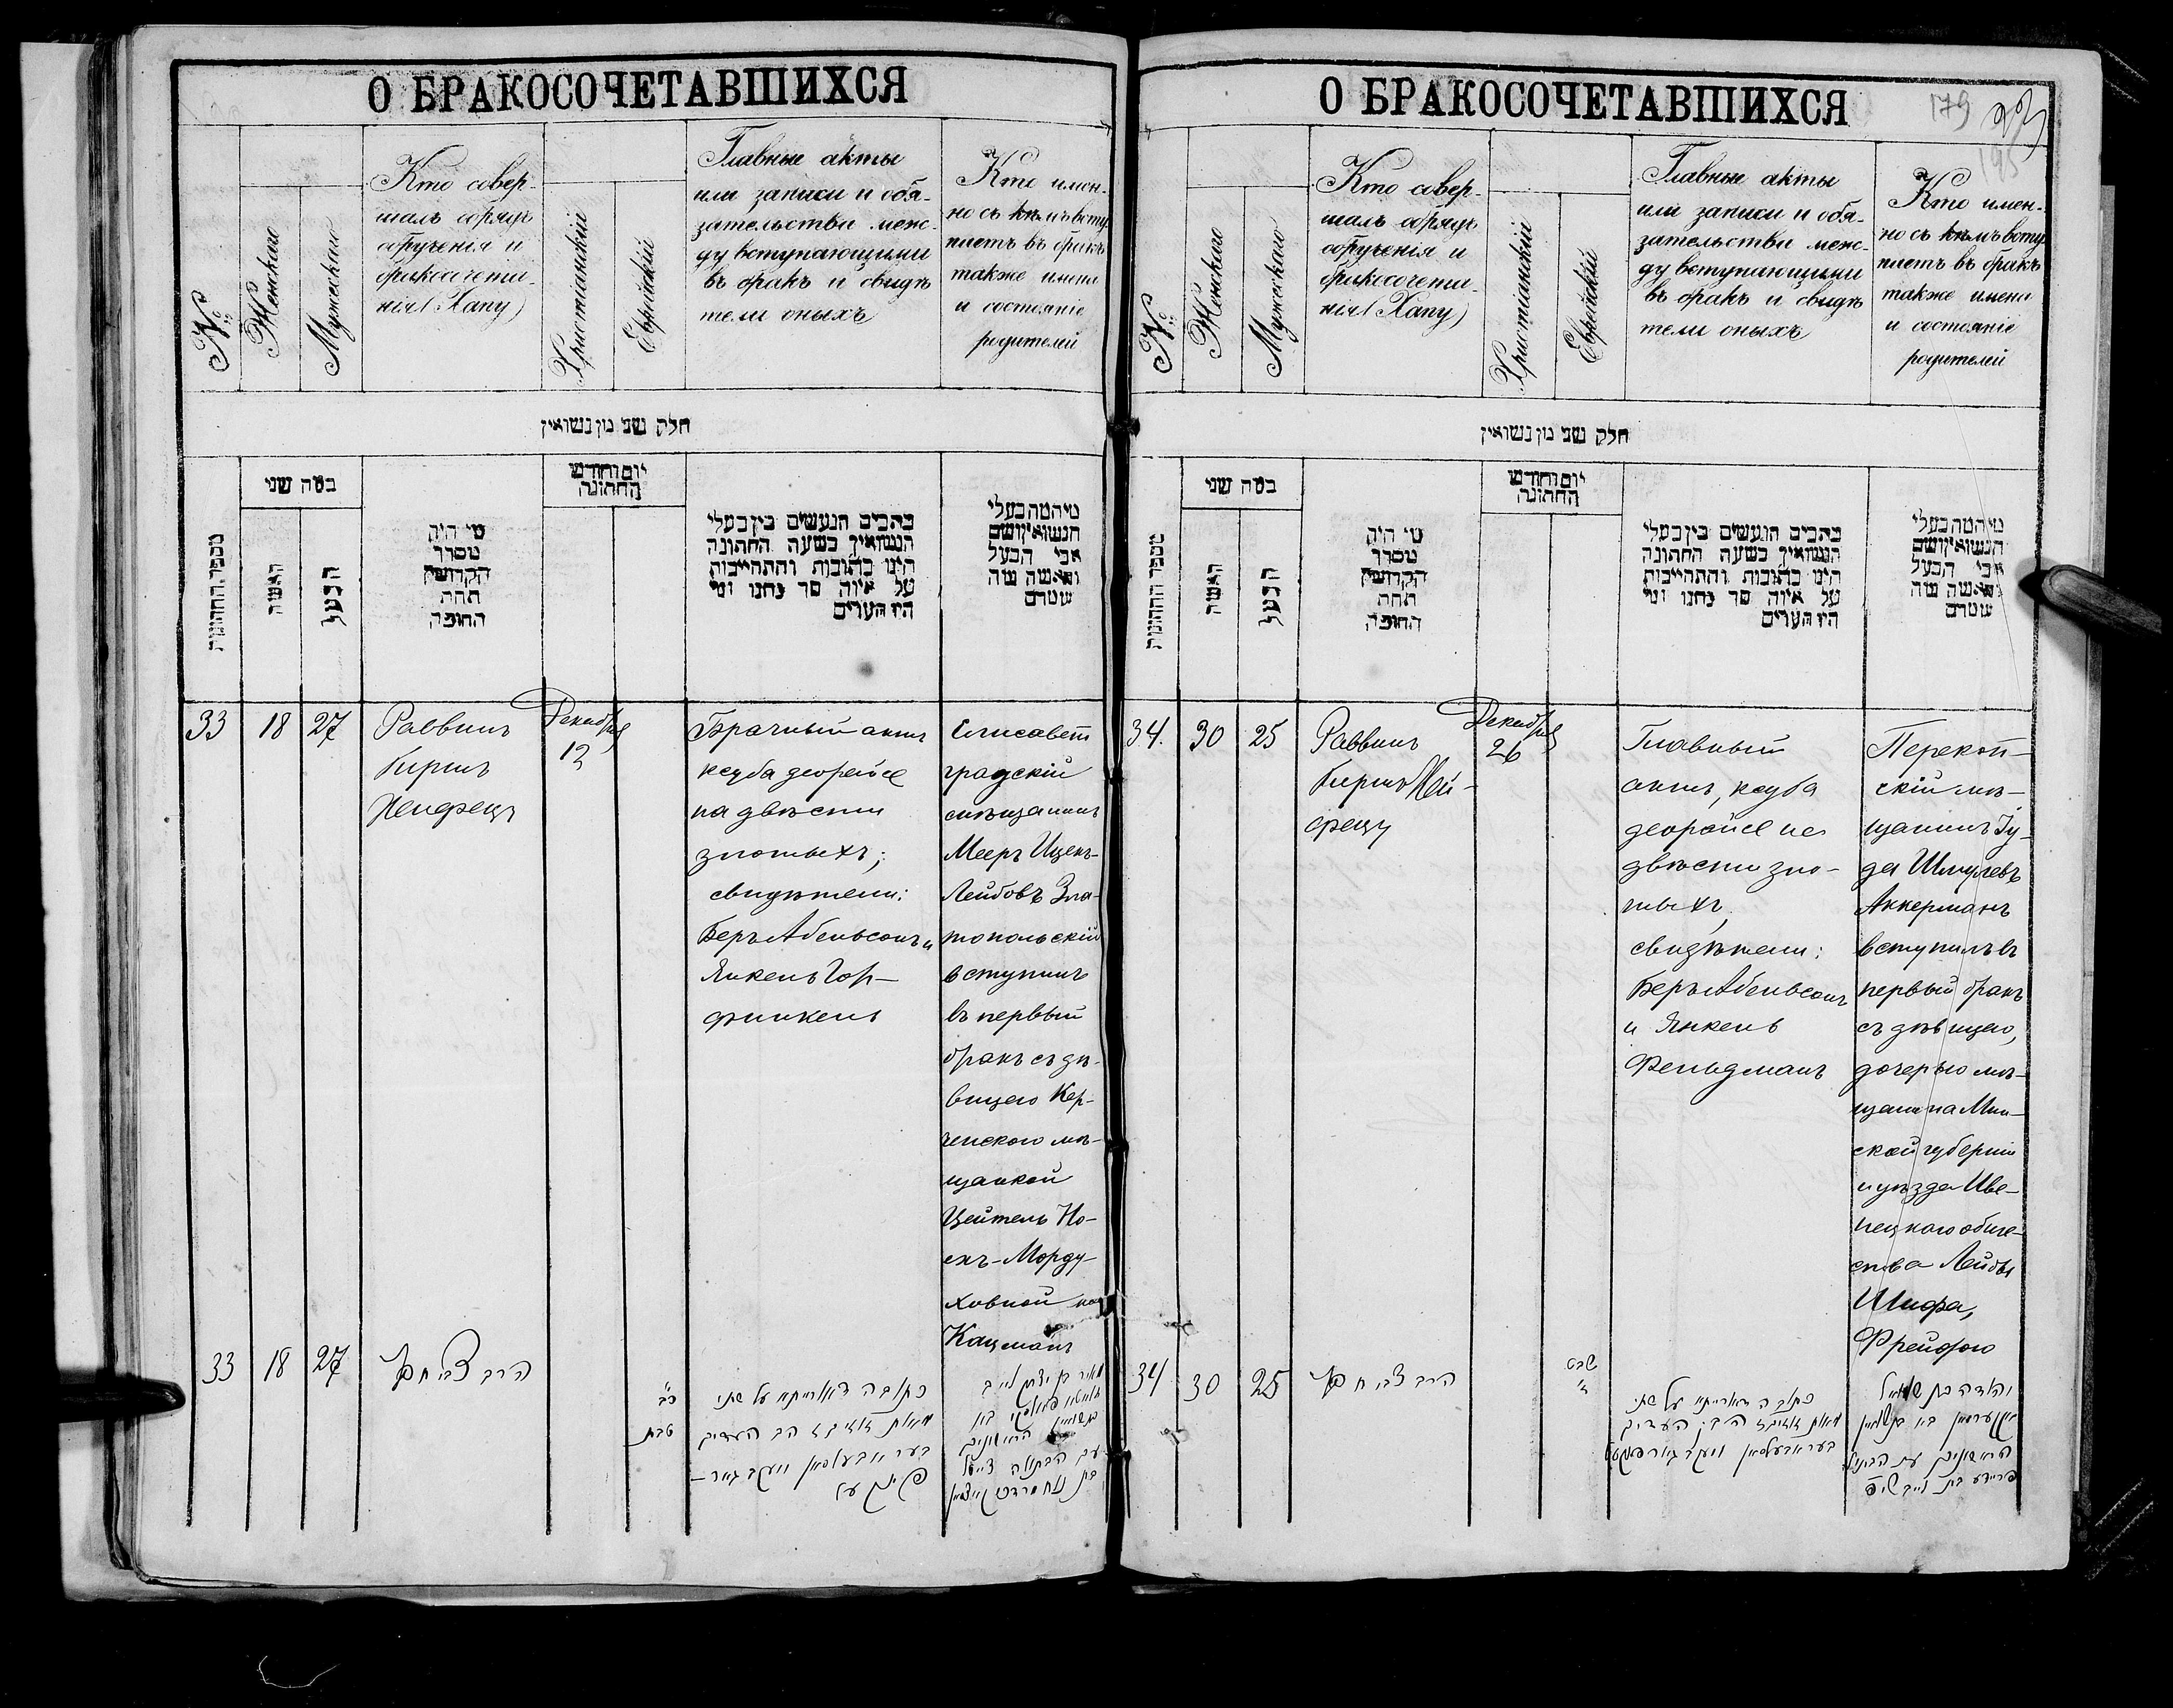 О БРАКОСОЧЕТАВШИХСЯ
№
Женскаго
Мужескаго
Кто совер-
шалъ обрядъ
обрученія и
бракосочета-
нія (Хапу)
Христіанскій
Еврейскій
Главные акты
или записи и обя-
зательства меж-
ду вступающими
въ бракъ и свидѣ
тели оныхъ
Кто имен-
но съ кѣмъ всту-
паетъ въ бракъ
также имена
и состояніе
родителей
חלק שני מן נשואין
מספר החתונות
במה שני
האשה
הבעל
מי היה
מסדר
הקדושין
תחת
החופה
יום וחודש
החתונה
כתבים הנעשים בין בעלי
הנשואין בשעה החתונה
הינו כתובות והתהייבות
על איזה סך נתנו ומי
היו העדים
33
18
27
Раввинъ
Гиршъ
Хейфецъ
Декабря
12
Брачный актъ
ксуба деорайсе
на двѣсти
злотыхъ;
свидѣтели:
Беръ Абельсонъ и
Янкель Гор-
финкель
Елисавет
градскій
мѣщанинъ
Мееръ Ицекъ-
Лейбовъ Зла-
топольскій
вступилъ
въ первый
бракъ съ дѣ-
вицею Кер-
ченскою мѣ-
щанкой
Цейтель Но-
ехъ-Морду-
ховной
Кацманъ
33
18
27
הרב צבי חפץ
כ"ב
טבת
כתובה דאורייתא על שתי
מאות זוז
פינקעל
О БРАКОСОЧЕТАВШИХСЯ
179
№
Женскаго
Мужескаго
Кто совер-
шалъ обрядъ
обрученія и
бракосочета-
нія (Хапу)
Христіанскій
Еврейскій
Главные акты
или записи и обя-
зательства меж-
ду вступающими
въ бракъ и свидѣ
тели оныхъ
Кто имен-
но съ кѣмъ всту-
паетъ въ бракъ
также имена
и состояніе
родителей
חלק שני מן נשואין
מספר החתונות
במה שני
האשה
הבעל
מי היה
מסדר
הקדושין
תחת
החופה
יום וחודש
החתונה
כתבים הנעשים בין בעלי
הנשואין בשעה החתונה
הינו כתובות והתהייבות
על איזה סך נתנו ומי
היו העדים
34.
30
25
Раввинъ
Гиршъ Хей-
фецъ
Декабря
26
Главный
актъ, ксуба
деорайсе на
двѣсти зло-
тыхъ,
свидѣтели:
Беръ Абельсонъ
и Янкель
Фельдманъ
Перекоп-
скій мѣ-
щанинъ Іу-
да Шмулевъ
Аккерманъ
вступилъ въ
первый бракъ
съ дѣвицею,
дочерью мѣ-
щанина Мин-
ской губерніи
и уѣзда Иве-
нецкаго обще-
ства Лейбы
Шифа,
Фрейдою
34
30
25
הרב צבי חפץ
שבט
כתובה דאורייתא על שתי